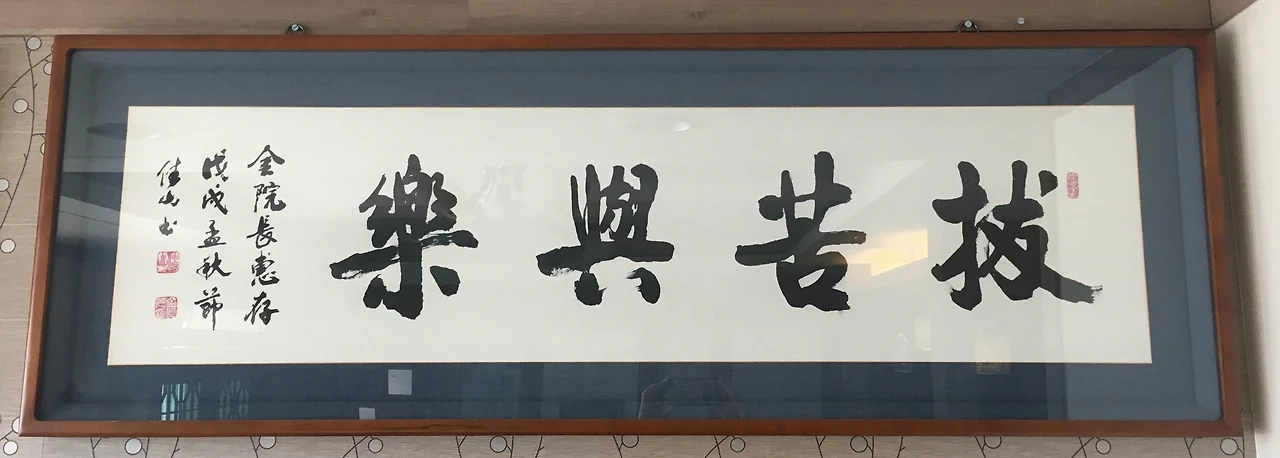 拔苦與樂
金院長惠存
戊戌孟秋節
佳山書